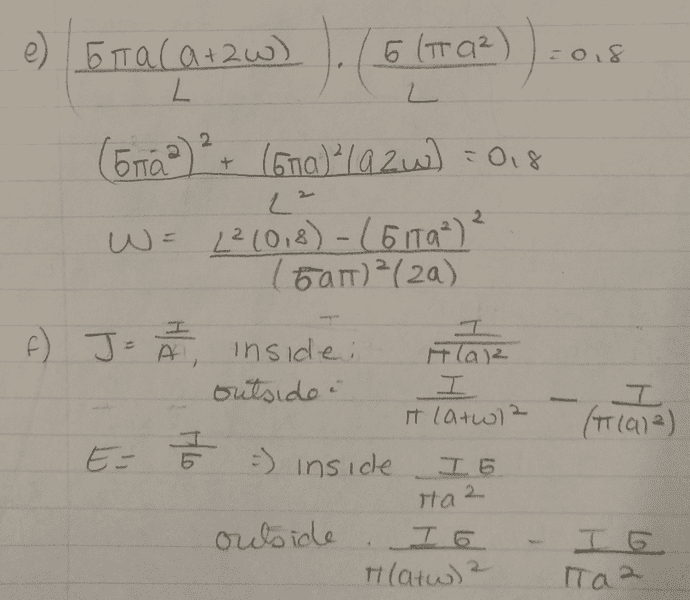 e) (5πa(a+2w)/L) · (5(πa²)/L) = 0,8
(5πa²)² + (5πa)²(a2w)/L² = 0,8
w = L²(0,8) - (5πa²)²/(5aπ)²(2a)
f) J = I/A, inside: I/π(a)²
outside: I/π(a+w)² - I/(π(a)²)
E = J/5 => inside I5/πa²
outside. I5/π(a+w)² - I5/πa²